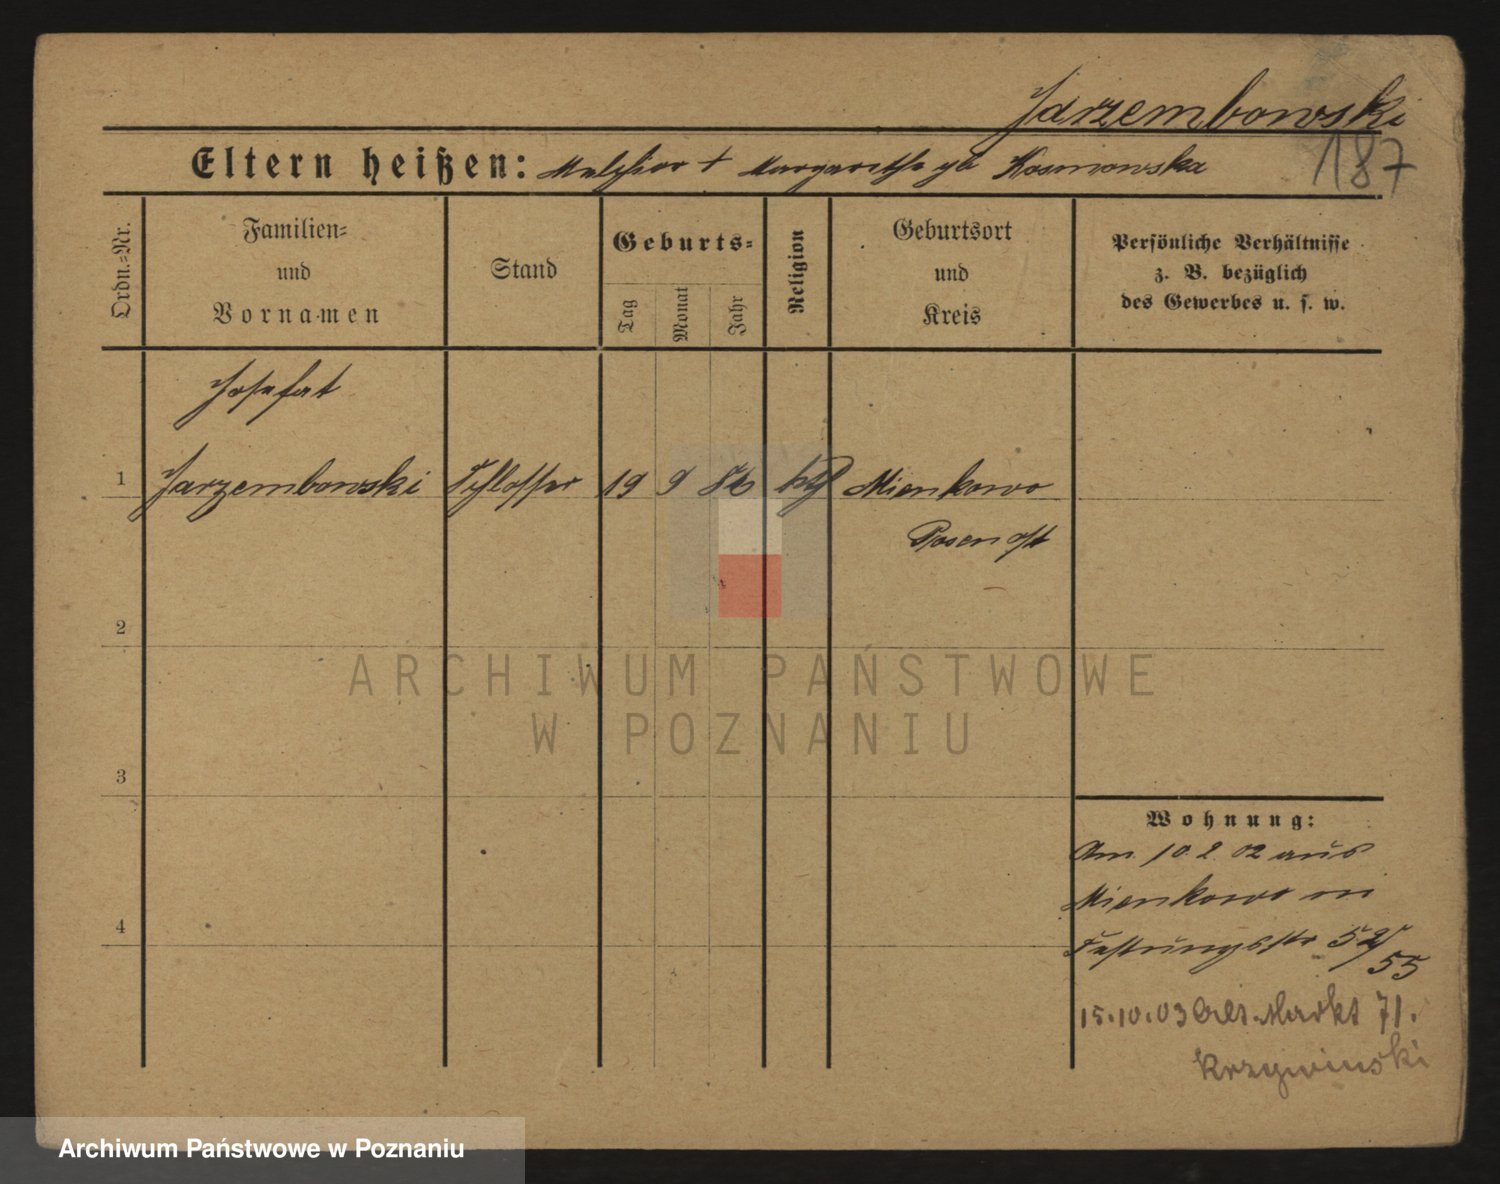 Jarzembowski
187
Eltern heißen: Melchior + Margarethe gb Kosmowska
Ordn.-Nr.
Familien-
und
Vornamen
Stand
Geburts-
Tag
Monat
Jahr
Religion
Geburtsort
und
Kreis
Persönliche Verhältnisse
z. B. bezüglich
des Gewerbes u. s. w.
Josefat
1 Jarzembowski Schlosser 19 9 86 kth Mienkowo
Posen Ost
2
3
4
Wohnung:
Am 10.2.02 aus
Mienkowo in
Festungsstr 52/55
15.10.03 Alt. Markt 71.
Krzywinski
ARCHIWUM PAŃSTWOWE
W POZNANIU
Archiwum Państwowe w Poznaniu